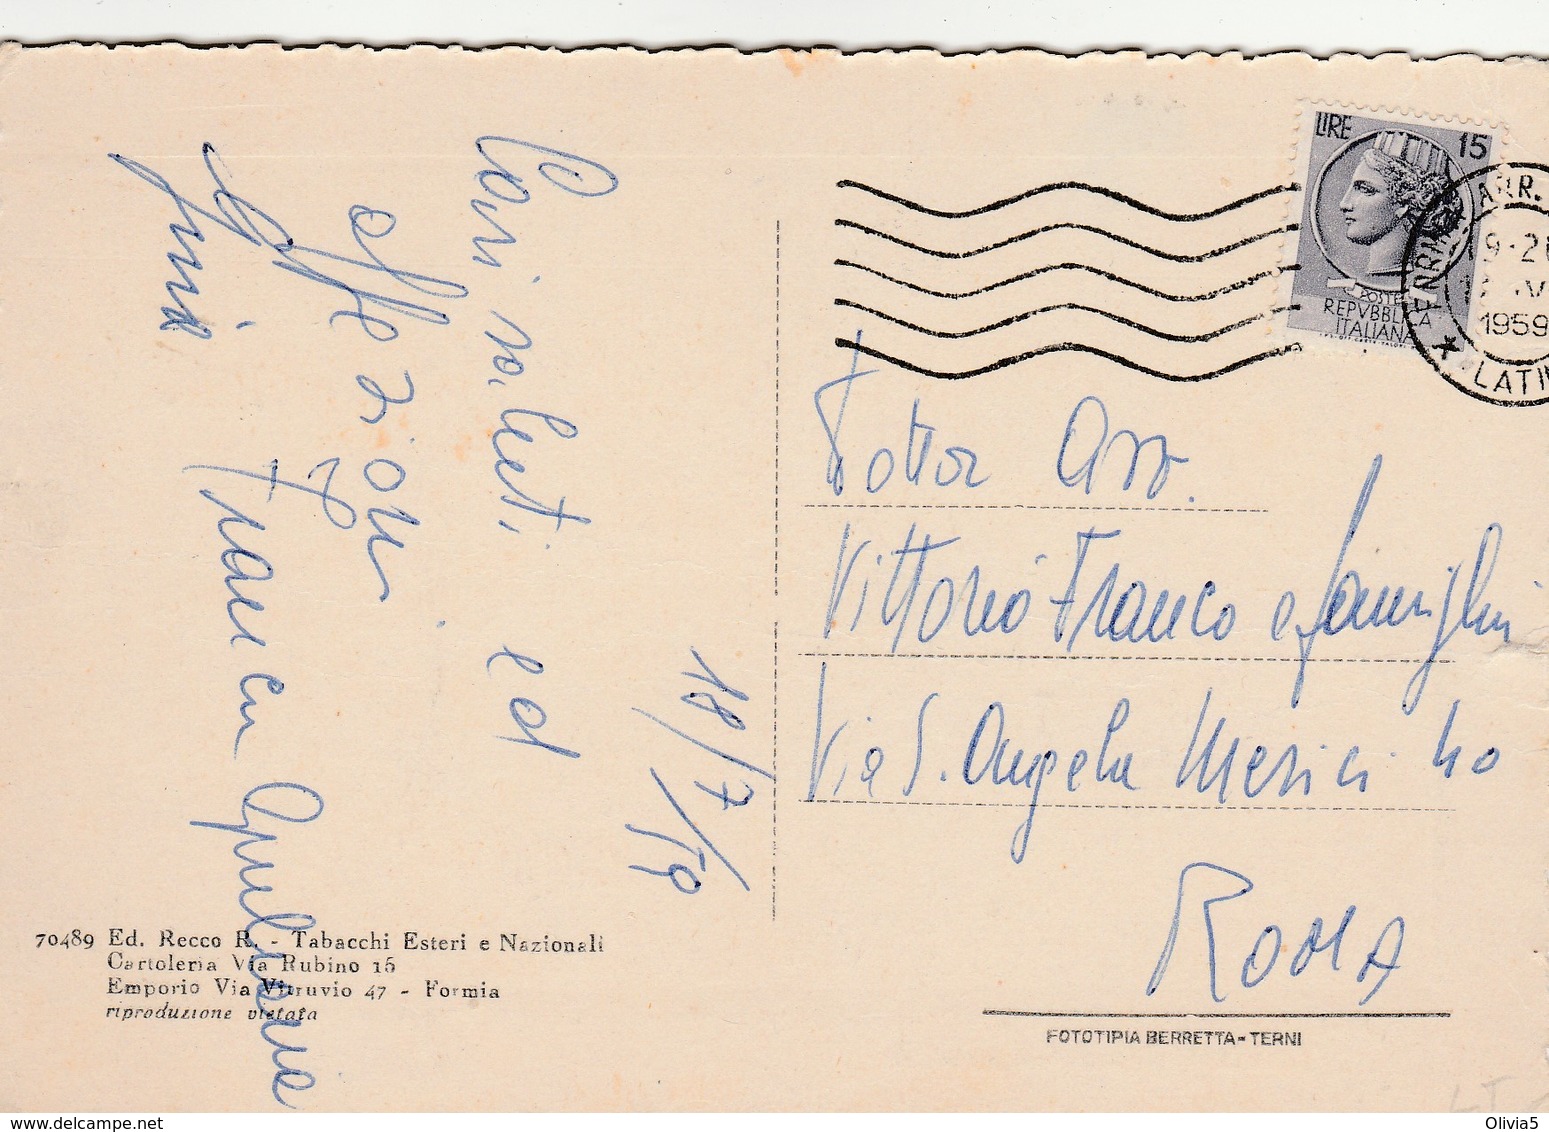 18/7/59
Cari saluti ed
affezioni
Franca Apuliani
LIRE 15
POSTE
REPVBBLICA
ITALIANA
ARR.
19-20
1959
LATIN
Dottor Avv.
Vittorio Franco e famiglia
Via S. Angela Merici 40
ROMA
70489 Ed. Recco R. - Tabacchi Esteri e Nazionali
Cartoleria Via Rubino 15
Emporio Via Vitruvio 47 - Formia
riproduzione vietata
FOTOTIPIA BERRETTA - TERNI
LT
Olivia5